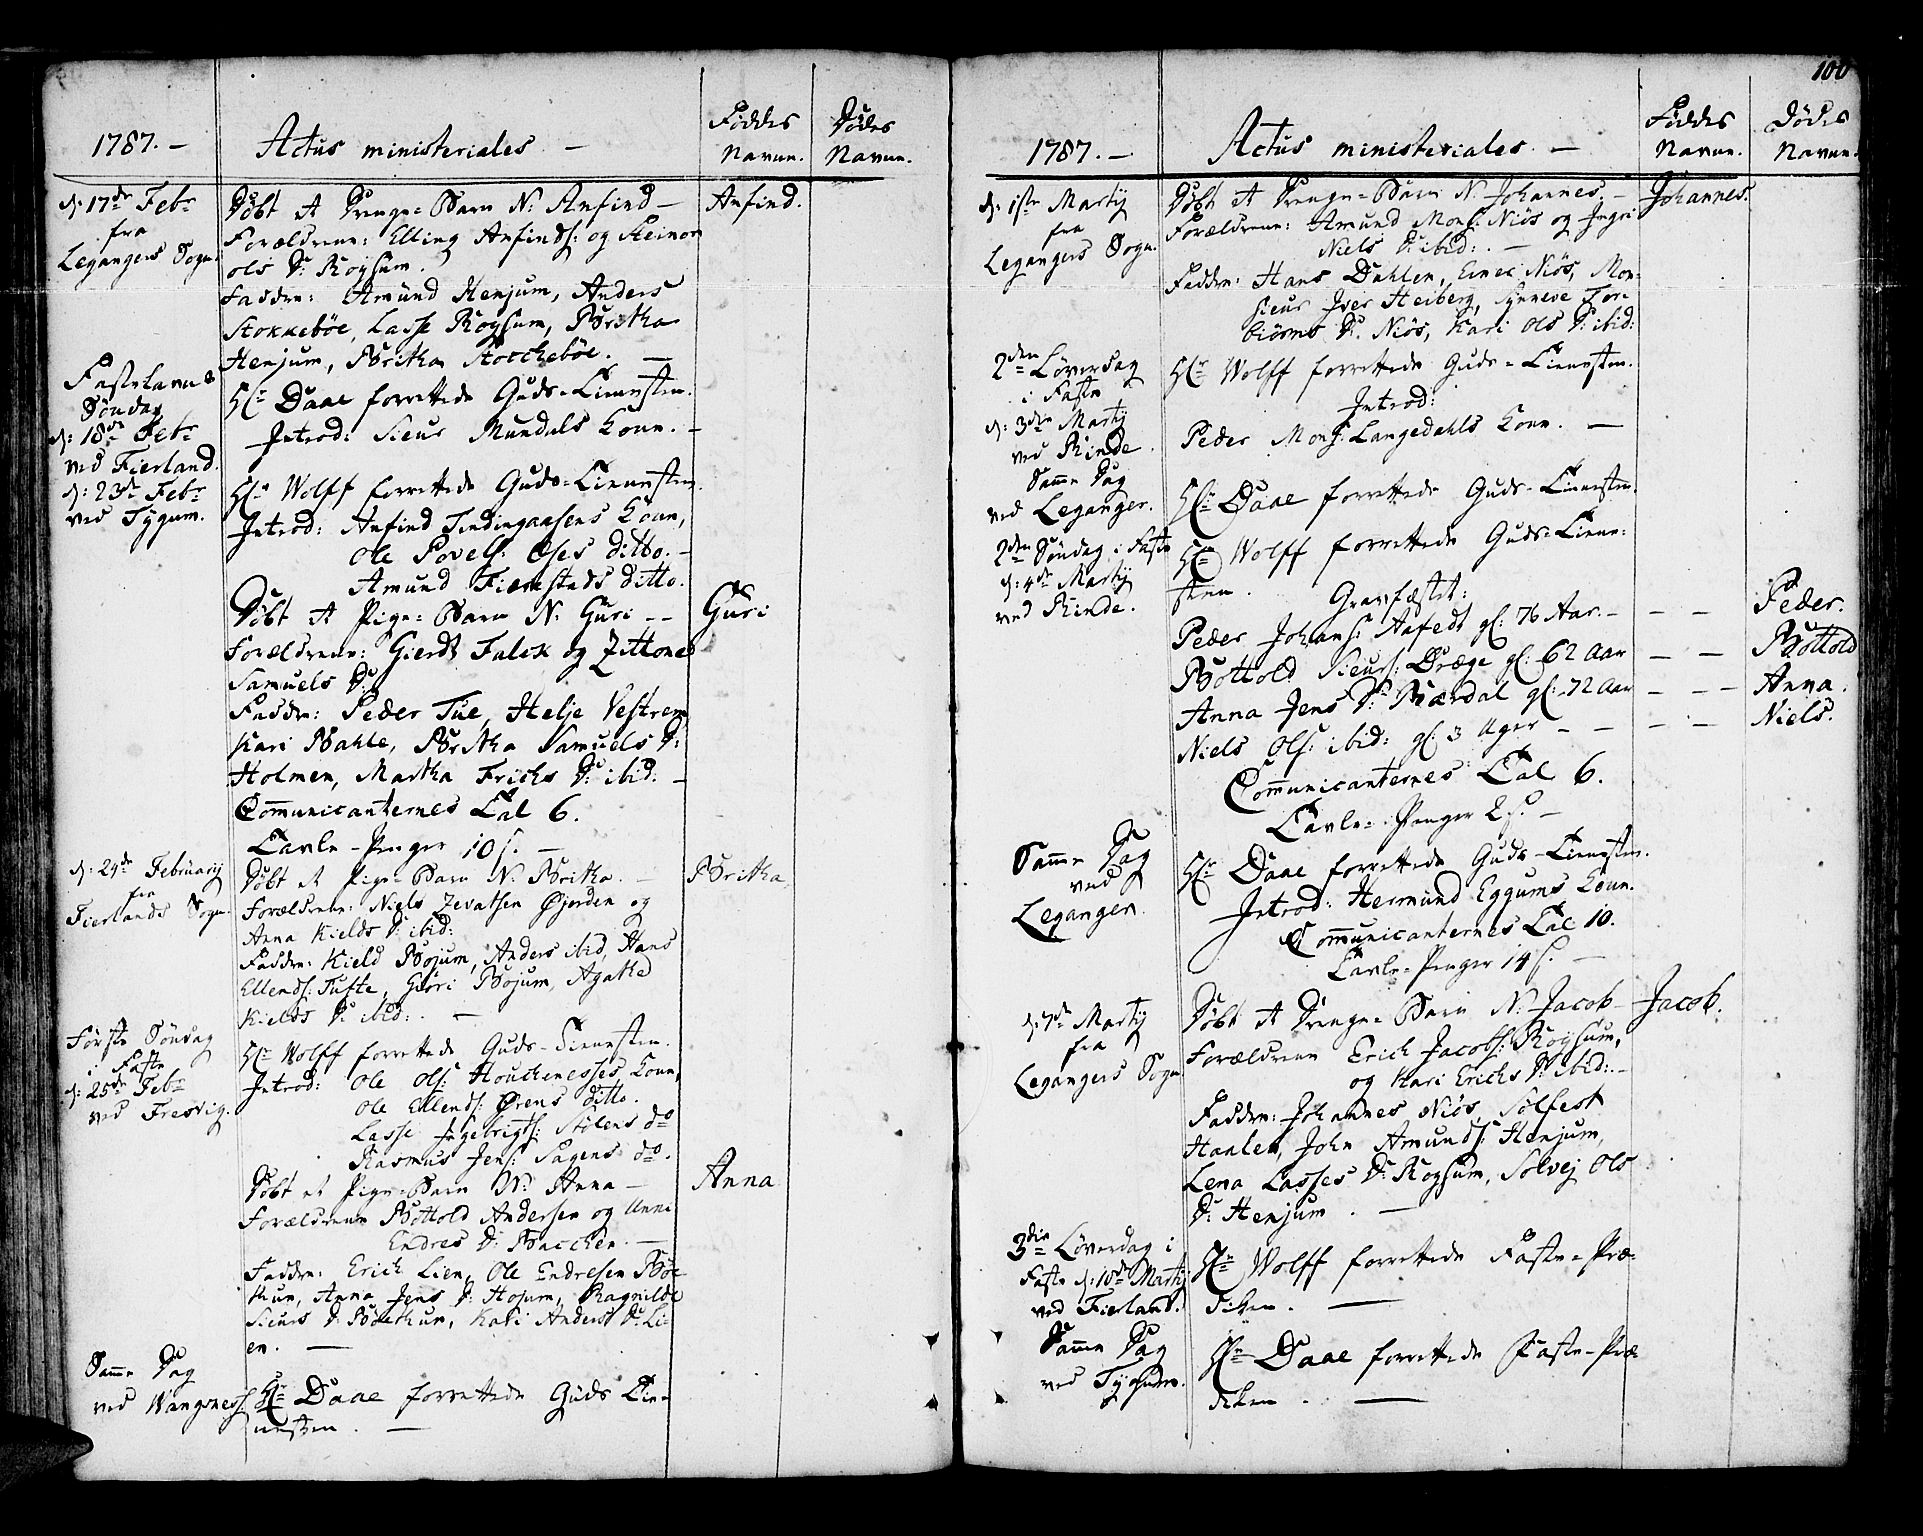 1787. –
Actus ministeriales. –
Föddes
Navne.
Dödes
Navne.
d: 17de Febr
fra
Legangers Sogn.
Döbt et Drenge-Barn N: Anfind –
Anfind.
Forældrene: Elling Anfinds: og Steinor
Ols D: Röysum.
Faddre: Amund Henjum, Anders
Stokkeböe, Lasse Röysum, Britha
Henjum, Britha Stocheböe. –
Fastelavns
Söndag
d: 18de Febr
ved Fierland.
Hr Daae forrettede Guds-Tienesten.
Introd: Sieur Mundals Kone. –
d: 23de Febr
ved Tygum.
Hr Wolff forrettede Guds-Tienesten.
Introd: Anfind Tendingaasens Kone,
Ole Povels: Eses ditto. –
Amund Fiærestads ditto.
Döbt et Pige-Barn N: Guri --
Guri
Forældrene: Gierdt Falck og Zittone
Samuels D:
Faddre: Peder Tue, Helje Vestrem
Kari Bahle, Britha Samuels D:
Holmen, Martha Frichs D: ibid: –
Communicanternes Tal 6.
Tavle-Penger 10 s. –
d: 24de Februarij
fra
Fierlands Sogn.
Döbt et Pige-Barn N: Britha. –
Britha.
Forældrene: Niels Zevatsen Øjorden og
Anna Kields D: ibid:
Faddre: Kield Böjum, Anders ibid, Hans
Ellends: Tufte, Giöri Böjum, Agathe
Kields D: ibid: . –
Förste Söndag
i Faste
d: 25de Febr
ved Fresvig.
Hr Wolff forrettede Guds-Tienesten.
Introd: Ole Ols: Houchenesses Kone,
Ole Ellends: Ørens ditto.
Lasse Ingebrigts: Stölens do
Rasmus Jens: Sagens do.
Döbt et Pige-Barn N: Anna –
Anna
Forældrene Bottold Andersen og Anni
Endres D: Bacchen. –
Faddre: Erich Lien, Ole Endresen Böe
tkun, Anna Jens D: Hojum, Ragnilde
Sieurs D: Böetkun, Kari Anders D: Li-
en. –
Samme Dag
ved Wangsness.
Hr Daae forrettede Guds Tie-
nesten. –
100
1787. –
Actus ministeriales. –
Föddes
Navne.
Dödes
Navne.
d: 1ste Martij
fra
Legangers Sogn.
Döbt et Drenge-Barn N: Johannes. –
Johannes.
Forældrene: Amund Mons: Niös og Ingri
Niels D: ibid: . –
Faddre: Hans Dahlen, Einer Niös, Mon-
sieur Iver Heiberg, Synneve Tor-
biörns D: Niös, Kari Ols D: ibid:
2den Löverdag
i Faste
d: 3die Martij
ved Rinde.
Hr Wolff forrettede Guds-Tienesten.
Introd:
Peder Mons: Langedahls Kone. –
Samme Dag
ved Leganger.
Hr Daae forrettede Guds-Tienesten.
2den Söndag i Faste
d: 4de Martij
ved Rinde.
Hr Wolff forrettede Guds-Tiene-
sten.
Gravfæstet:
Peder Johans: Aafedt gl: 76 Aar. – – –
Peder.
Bottold Sieurs: Dræge gl: 62 Aar – –
Bottold
Anna Jens D: Bærdal gl: 72 Aar – – –
Anna.
Niels Ols: ibid: gl: 3 Uger – – – – –
Niels.
Communicanternes Tal 6.
Tavle-Penger 2 s. –
Samme Dag
ved
Leganger.
Hr Daae forrettede Guds-Tienesten.
Introd: Hermund Eggums Kone.
Communicanternes Tal 10.
Tavle-Penger 14 s. –
d: 7de Martij
fra
Legangers Sogn
Döbt et Drenge-Barn N: Jacob –
Jacob.
Forældrene Erich Jacobs: Röysum,
og Kari Erichs D: ibid: –
Faddre: Johannes Niös, Sölfest
Haalen, John Amunds: Henjum,
Lena Lasses D: Röysum, Solvej Ols
D: Henjum. –
3die Löverdag i
Faste d: 10de Martij
ved Fierland.
Hr Wolff forrettede Faste-Præ-
diken. –
Samme Dag
ved Tygum.
Hr Daae forrettede Faste-Præ-
diken. –